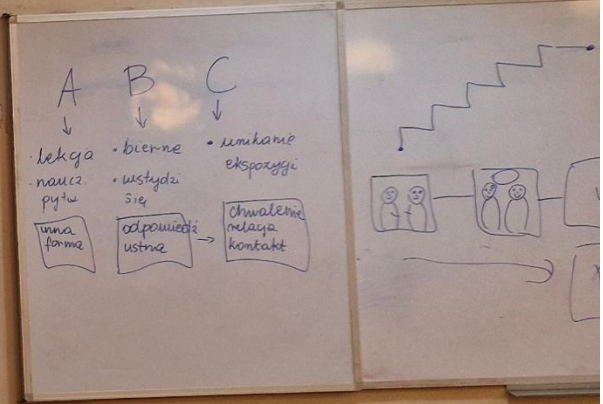 A B C
• lekcja
- naucz.
pyta
inna
forma
• bierne
• wstydzi
się
odpowiedź
ustna
• unikanie
ekspozycji
chwalenie
relacja
kontakt